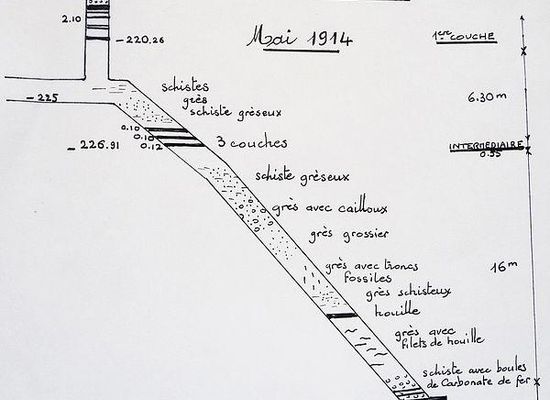 2.10
-220.26
Mai 1914
1ère COUCHE
schistes
grès
schiste grèseux
-225
6.30 m
0.10
0.10
0.12
3 couches
-226.91
INTERMÉDIAIRE
0.55
schiste grèseux
grès avec cailloux
grès grossier
grès avec troncs
fossiles
16 m
grès schisteux
houille
grès avec
filets de houille
schiste avec boules
de Carbonate de fer